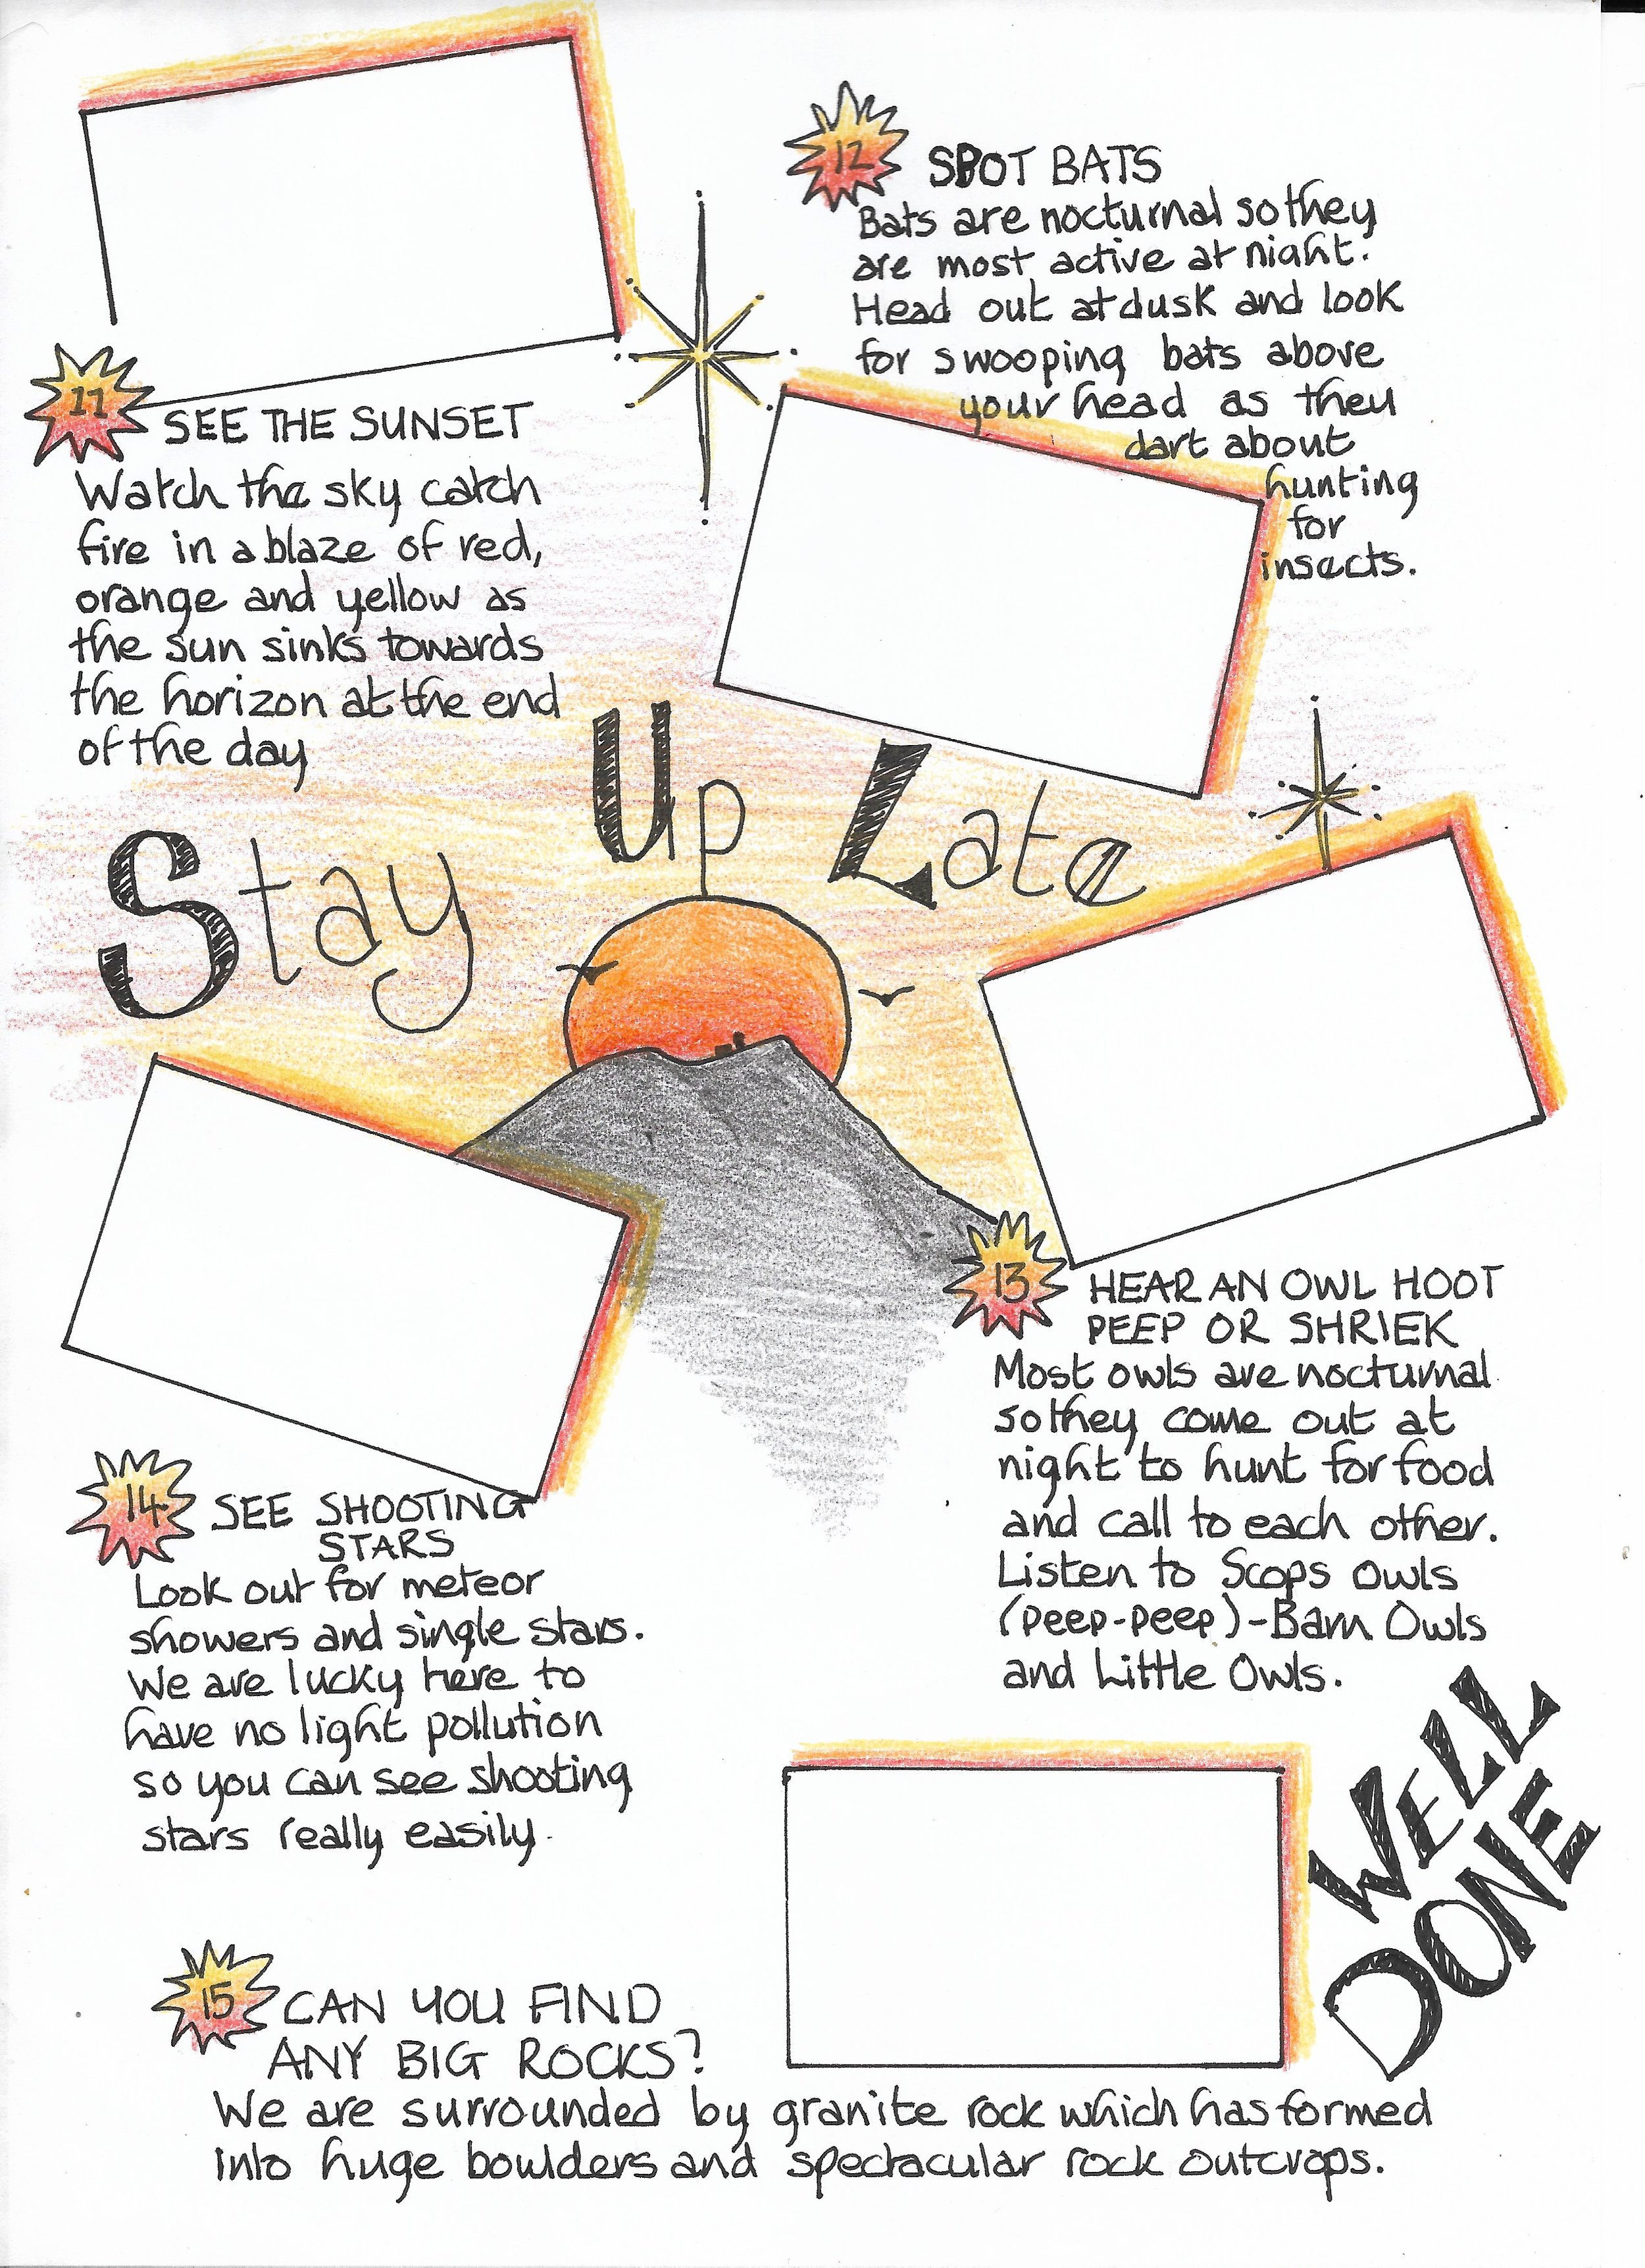 11
SEE THE SUNSET
Watch the sky catch
fire in a blaze of red,
orange and yellow as
the sun sinks towards
the horizon at the end
of the day
12
SPOT BATS
Bats are nocturnal so they
are most active at night.
Head out at dusk and look
for swooping bats above
your head as they
dart about
hunting
for
insects.
Stay Up Late
13
HEAR AN OWL HOOT
PEEP OR SHRIEK
Most owls are nocturnal
so they come out at
night to hunt for food
and call to each other.
Listen to Scops Owls
(peep-peep)-Barn Owls
and Little Owls.
14
SEE SHOOTING
STARS
Look out for meteor
showers and single stars.
We are lucky here to
have no light pollution
so you can see shooting
stars really easily.
WELL
DONE
15
CAN YOU FIND
ANY BIG ROCKS?
We are surrounded by granite rock which has formed
into huge boulders and spectacular rock outcrops.